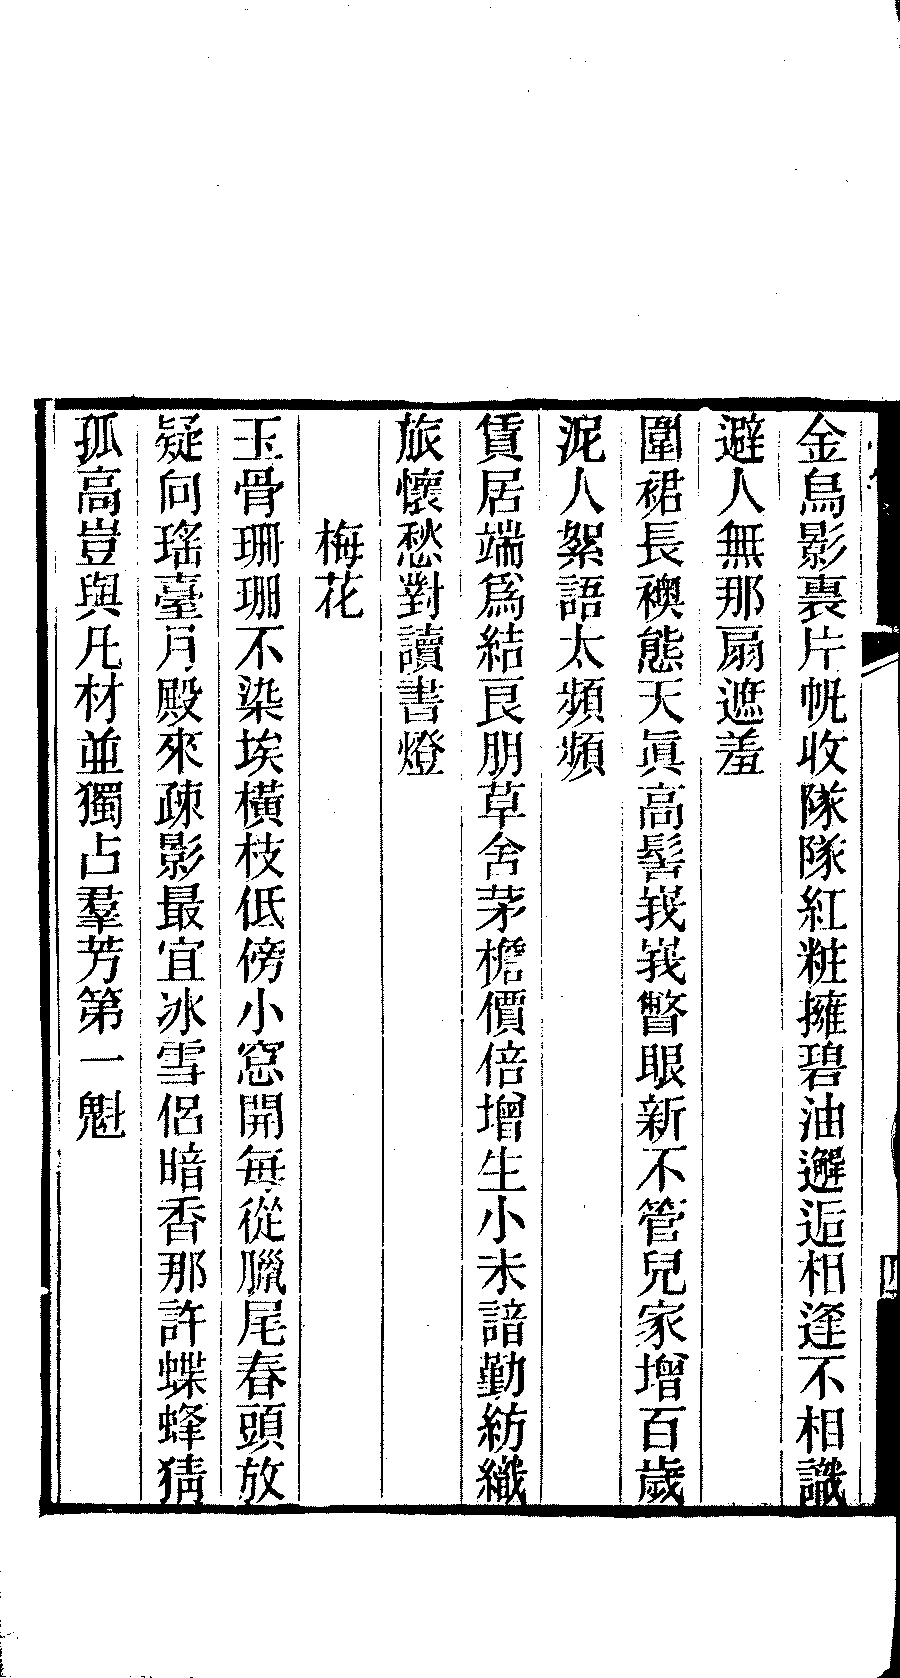 金烏影裏片帆收隊隊紅粧擁碧油邂逅相逢不相識
避人無那扇遮羞
圍裙長襖態天眞高髻峩峩瞥眼新不管兒家增百歲
泥人絮語太頻頻
賃居端爲結良朋草舍茅檐價倍增生小未諳勤紡織
旅懷愁對讀書燈
梅花
玉骨珊珊不染埃橫枝低傍小窓開每從臘尾春頭放
疑向瑤臺月殿來疎影最宜冰雪侶暗香那許蝶蜂猜
孤高豈與凡材並獨占羣芳第一魁